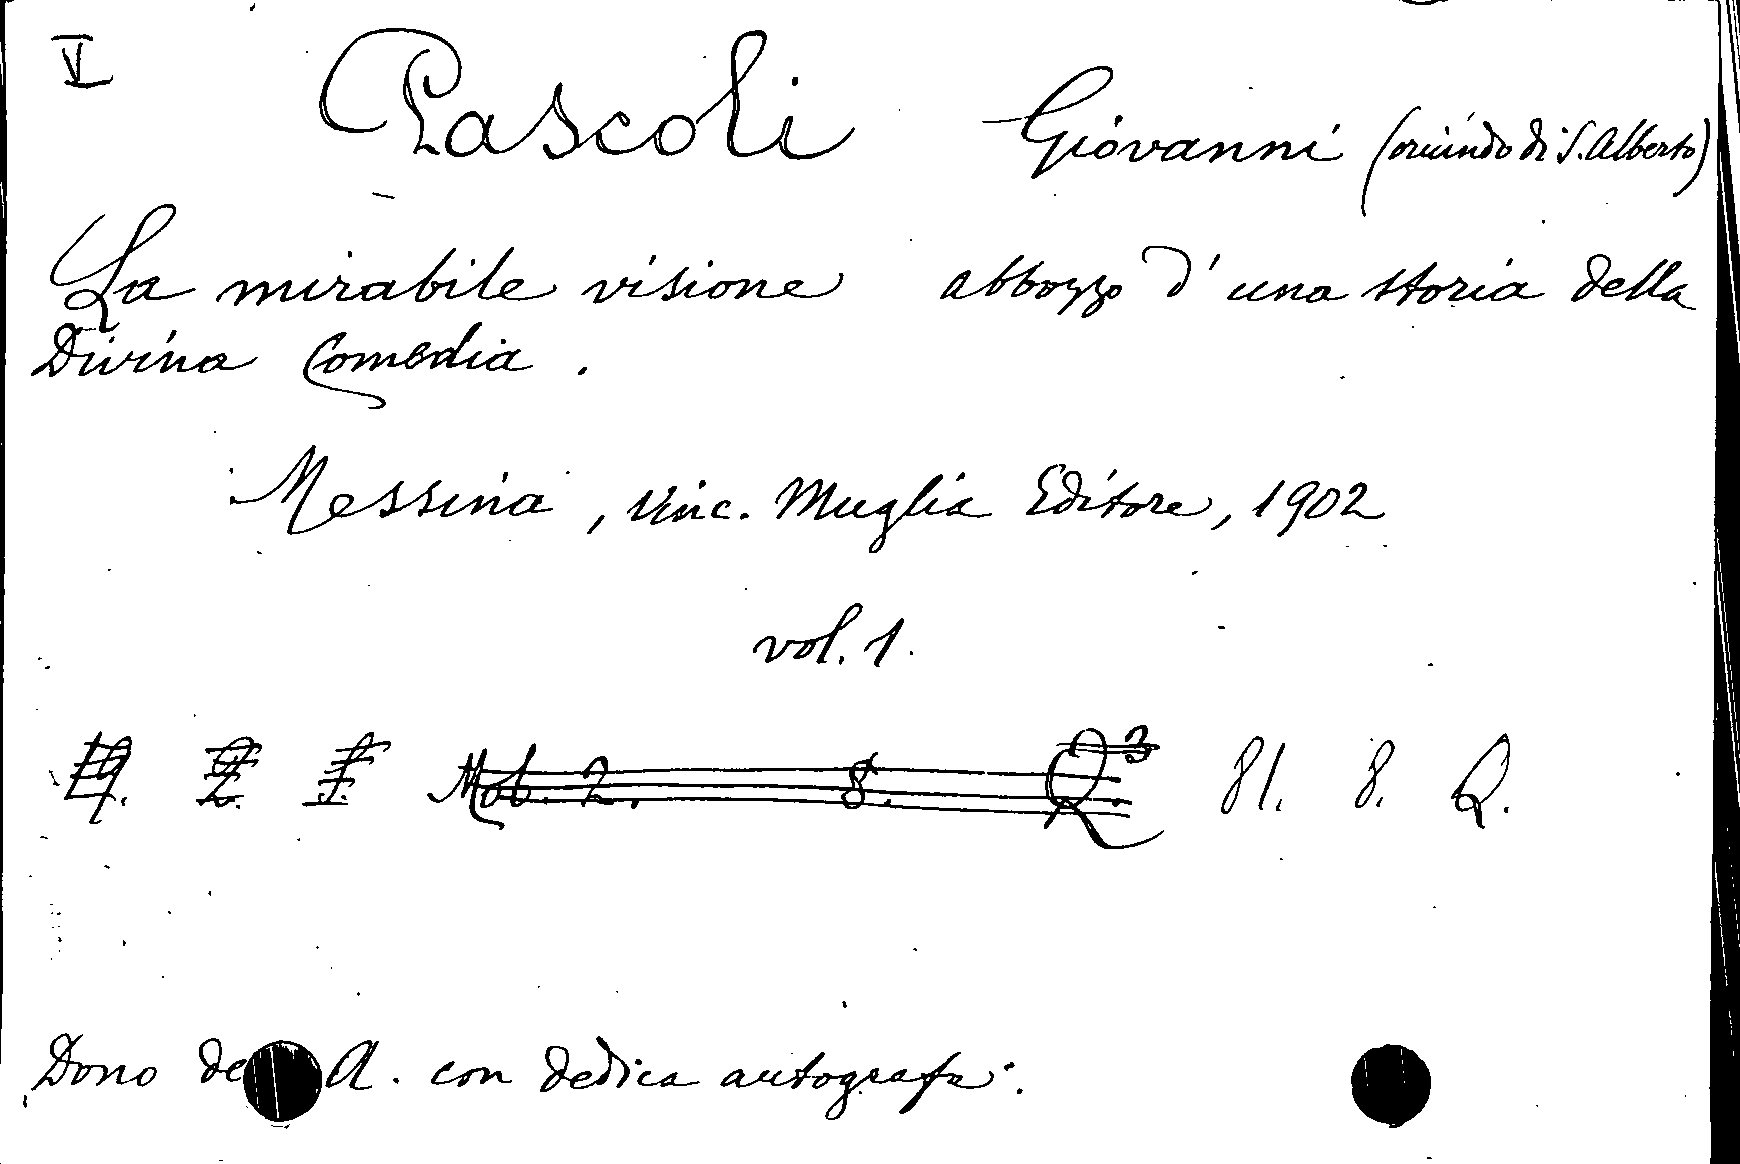 V
Pascoli Giovanni (oriundo di S. Alberto)
La mirabile visione abbozzo d'una storia della
Divina Comedia.
Messina, Vinc. Muglia Editore, 1902
vol. 1.
Mob. 2. 8. Q³ 81. 8. Q.
Dono de A. con dedica autografa.